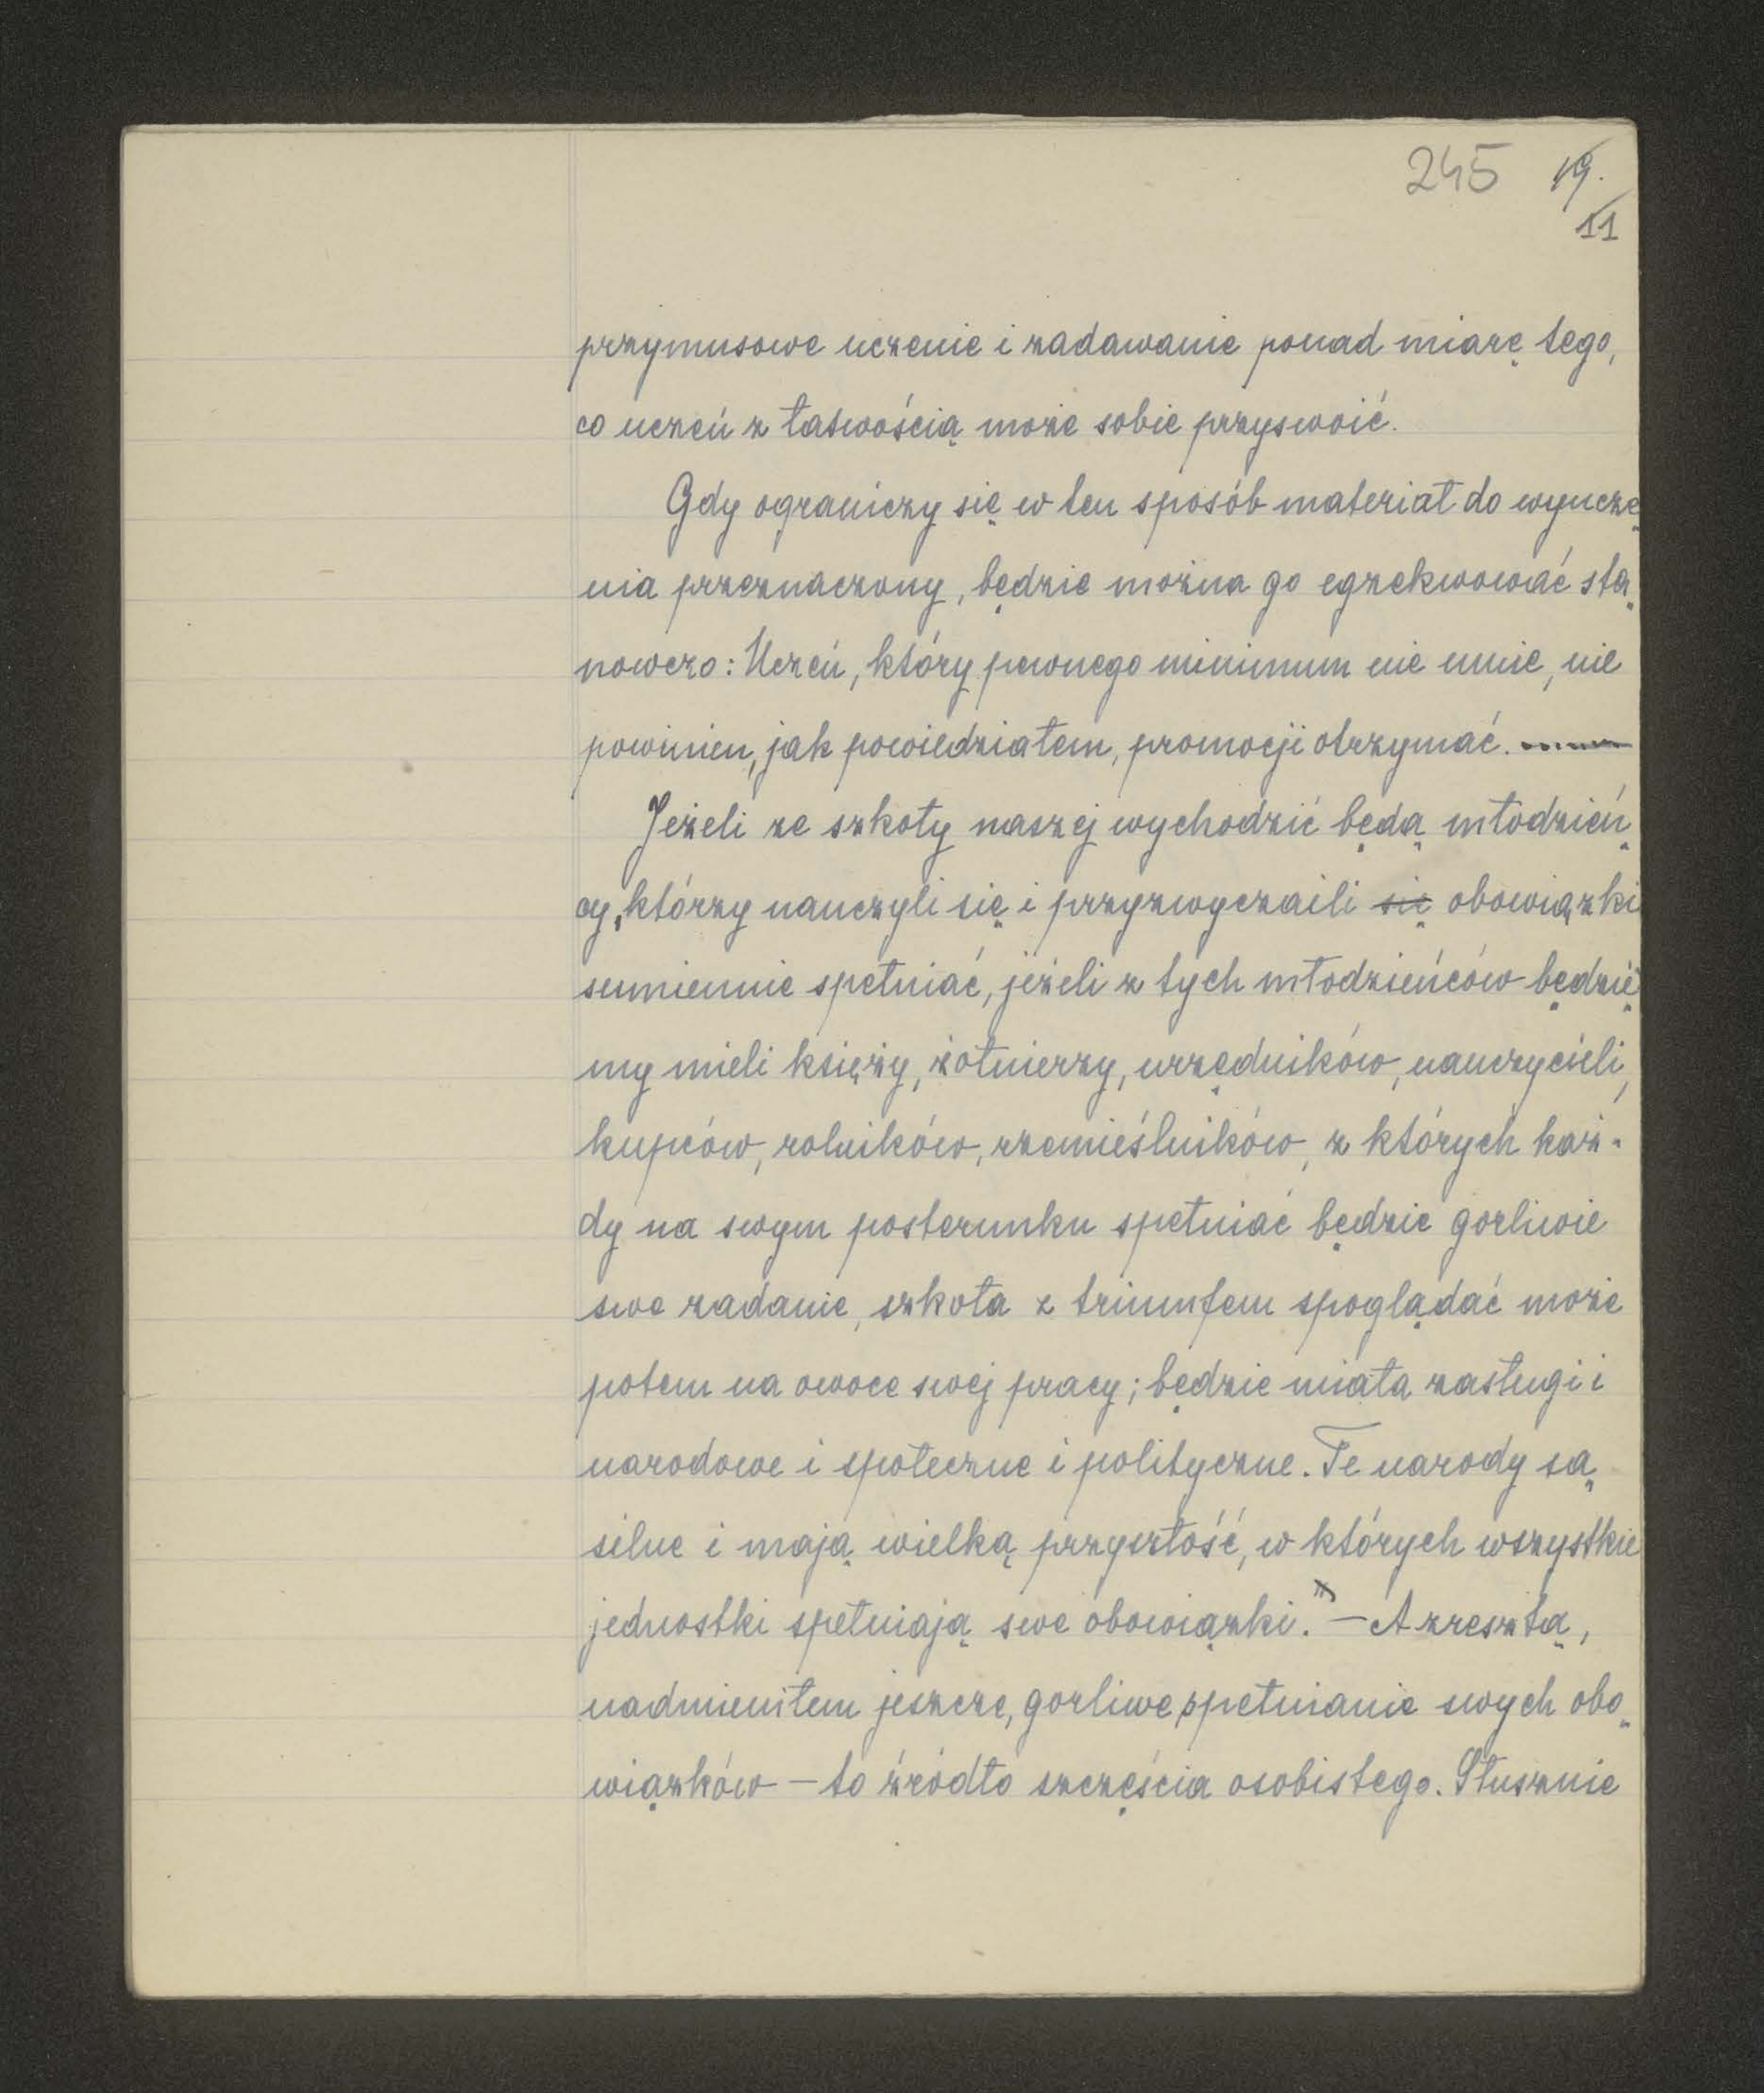 245 19.
11
przymusowe uczenie i zadawanie ponad miarę tego,
co uczeń z łatwością może sobie przyswoić.
Gdy ograniczy się w ten sposób materiał do wyucze
nia przeznaczony, będzie można go egzekwować sta
nowczo: Uczeń, który pewnego minimum nie umie, nie
powinien, jak powiedziałem, promocji otrzymać.
Jeżeli ze szkoły naszej wychodzić będą młodzień
cy, którzy nauczyli się i przyzwyczaili się obowiązki
sumiennie spełniać, jeżeli z tych młodzieńców będzie
my mieli księży, żołnierzy, urzędników, nauczycieli,
kupców, rolników, rzemieślników, z których każ-
dy na swym posterunku spełniać będzie gorliwie
swe zadanie, szkoła z triumfem spoglądać może
potem na owoce swej pracy; będzie miała zasługi i
narodowe i społeczne i polityczne. Te narody są
silne i mają wielką przyszłość, w których wszystkie
jednostki spełniają swe obowiązki." — A zresztą,
nadmieniłem jeszcze, gorliwe spełnianie swych obo
wiązków — to źródło szczęścia osobistego. Słusznie